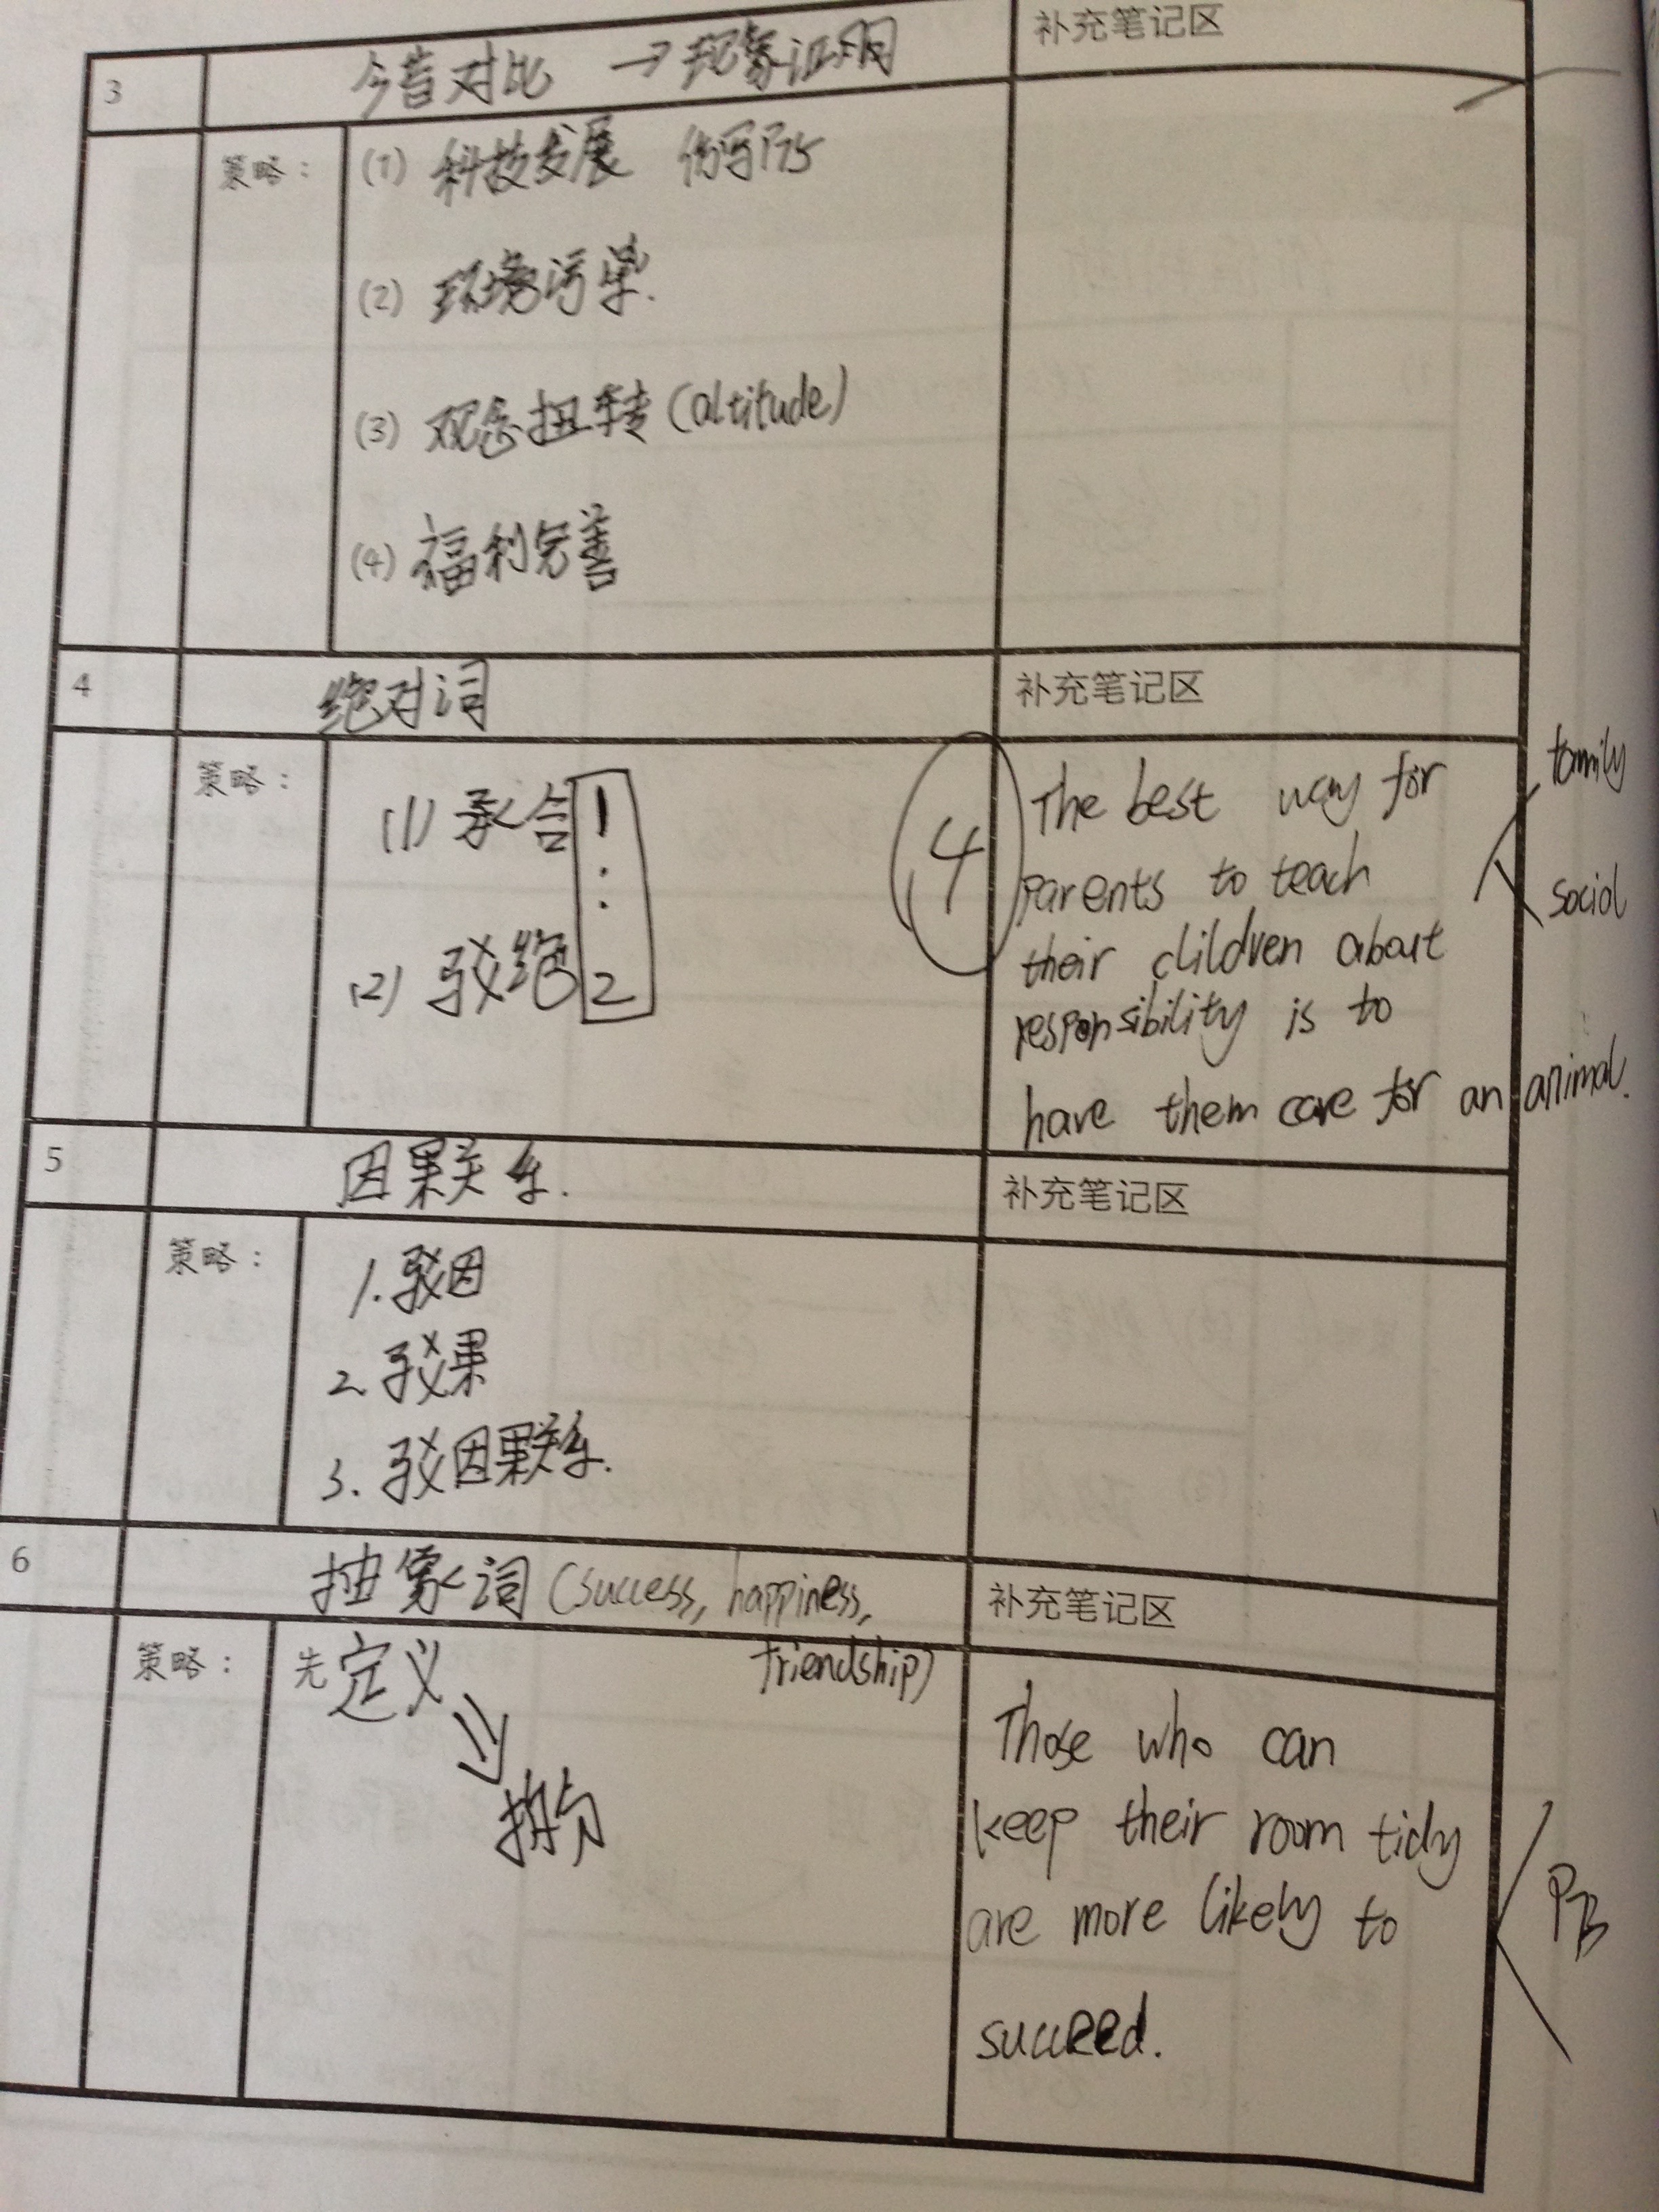 3 今昔对比 → 现象证明
补充笔记区
策略：
(1) 科技发展 仿写P75
(2) 环境污染.
(3) 观念扭转(altitude)
(4) 福利完善
4 绝对词
补充笔记区
策略：
(1) 承合 1
:
(2) 驳绝 2
4
The best way for
parents to teach
their clildren about
responsibility is to
have them care for an animal.
family
social
5 因果关系.
补充笔记区
策略：
1. 驳因
2. 驳果
3. 驳因果关系.
6 抽象词 (success, happiness,
friendship)
补充笔记区
策略：
先定义
⇓
拆分
Those who can
keep their room tidy
are more likely to
succeed.